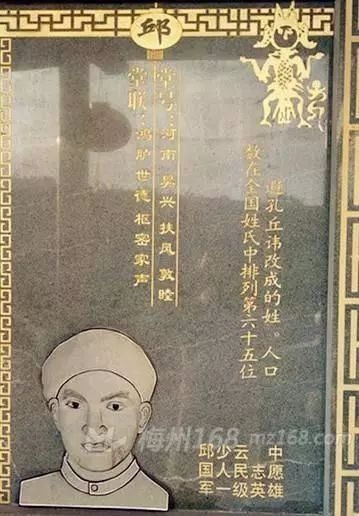 邱
避孔丘讳改成的姓。人口
数在全国姓氏中排列第六十五位
堂号：河南 吴兴 扶风 敦睦
堂联：鸿胪世德 枢密家声
邱少云 中
国人民志愿
军一级英雄
梅州168 mz168.com